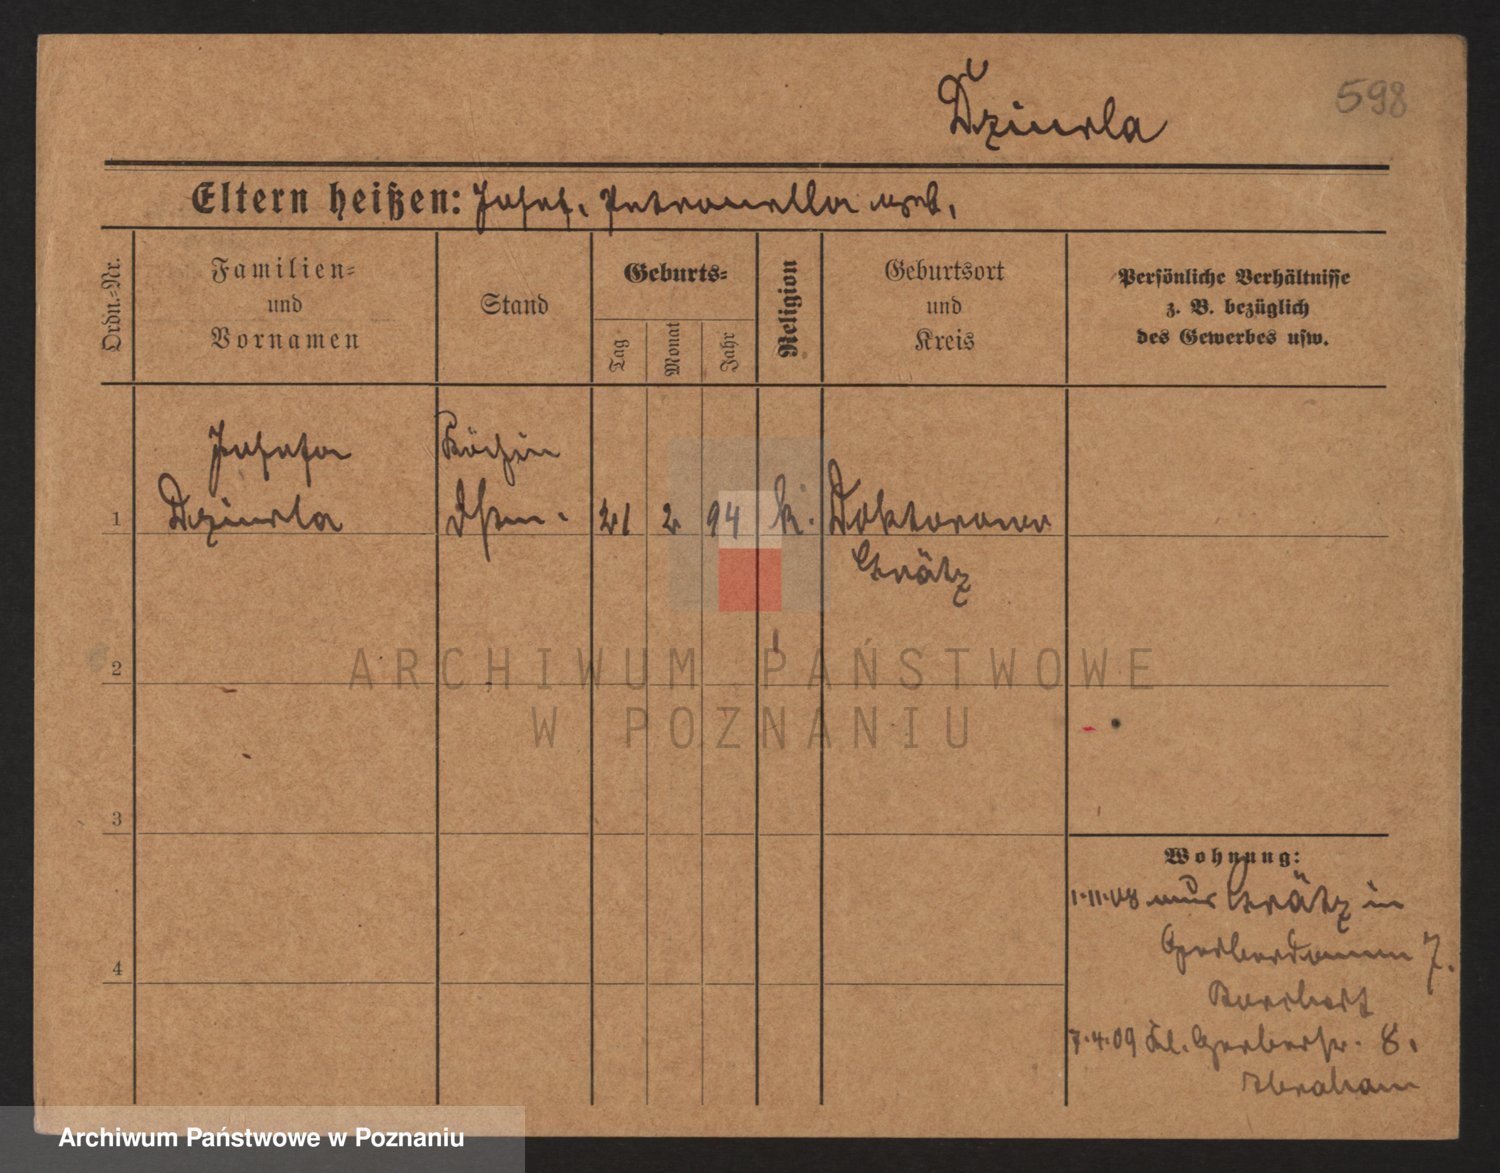 Dziurla
598
Eltern heißen: Josef, Petronella geb.
Ordn.-Nr.
Familien-
und
Vornamen
Stand
Geburts-
Tag
Monat
Jahr
Religion
Geburtsort
und
Kreis
Persönliche Verhältnisse
z. B. bezüglich
des Gewerbes usw.
Josefa Köchin
1 Dziurla 21 2 94 k. Doktorowo
Grätz
2
3
4
Wohnung:
1.11.08 aus Grätz in
Gerberdamm 7.
7.4.09 Kl. Gerberstr. 8.
Abraham
ARCHIWUM PAŃSTWOWE
W POZNANIU
Archiwum Państwowe w Poznaniu